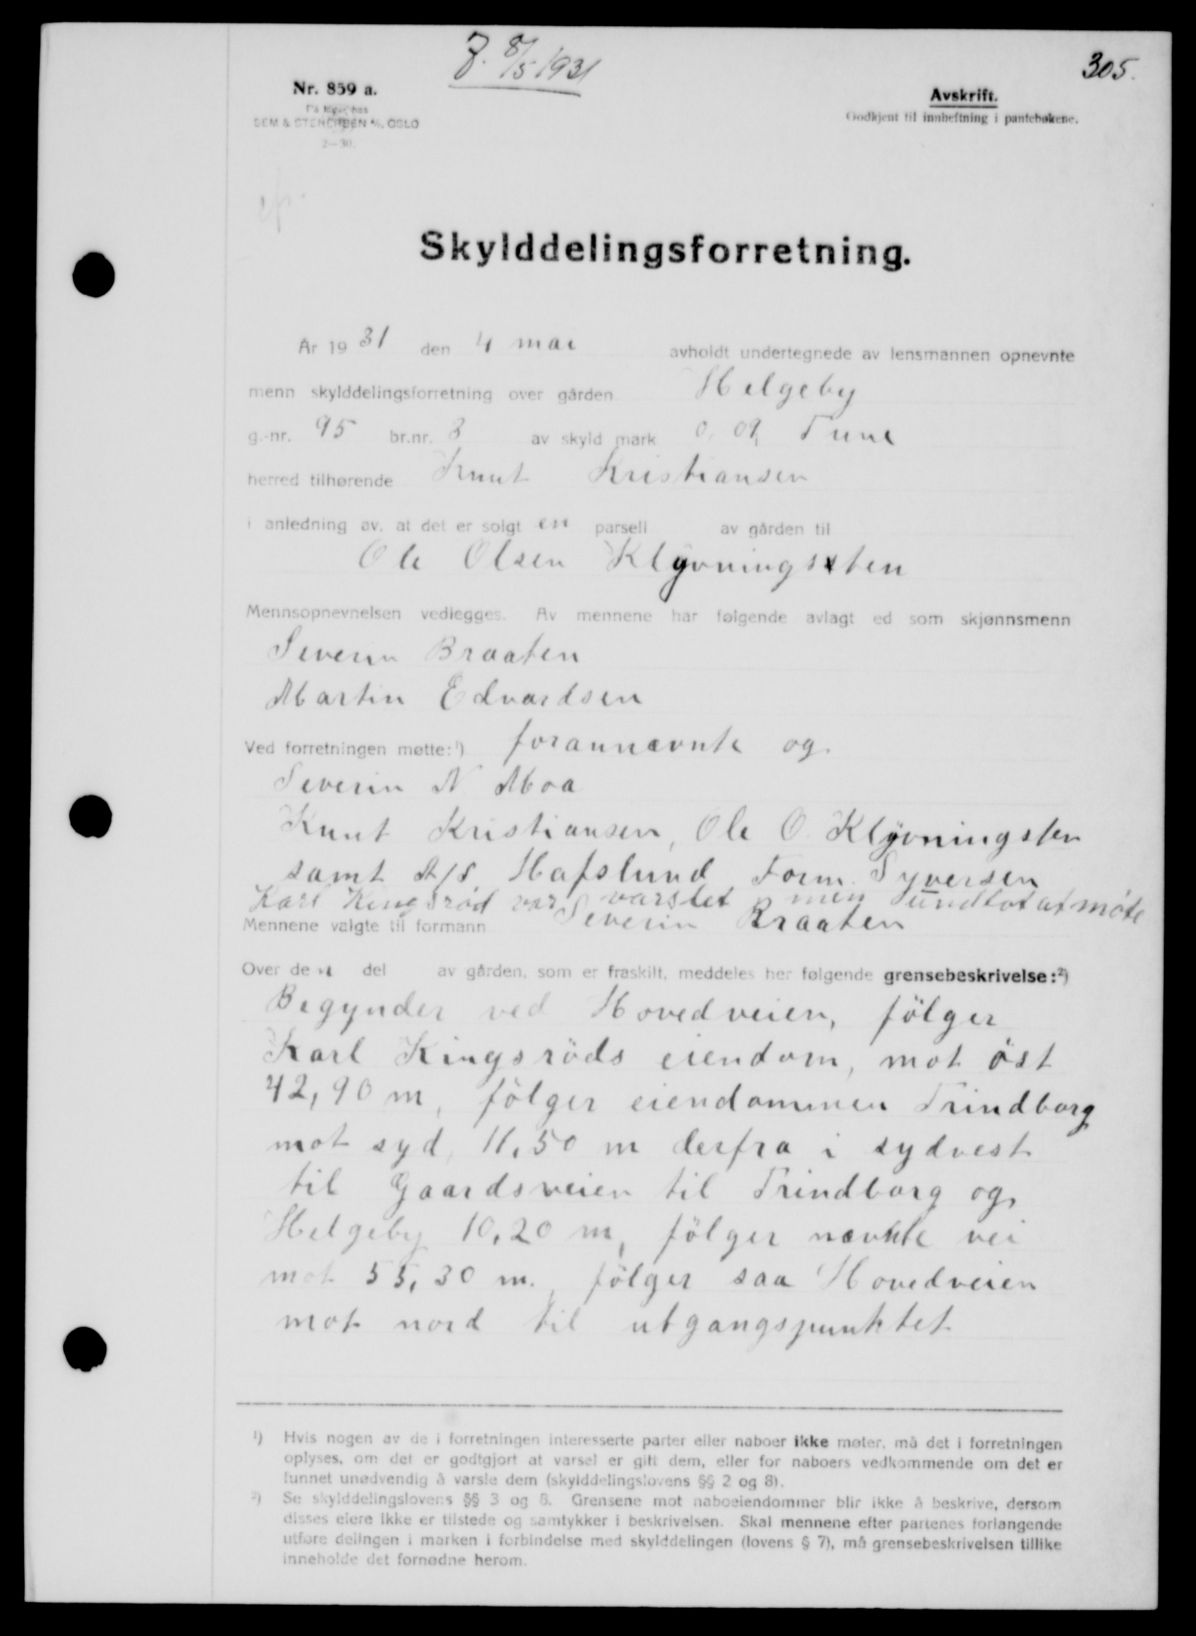 7. 8/5 1931
305.
Nr. 859 a.
SEM & STENERSEN A/S, OSLO
2—30.
Avskrift.
Godkjent til innheftning i pantebøkene.
Skylddelingsforretning.
År 1931 den 4 mai avholdt undertegnede av lensmannen opnevnte
menn skylddelingsforretning over gården Helgeby
g.-nr. 95 br.nr. 3 av skyld mark 0,09, Tune
herred tilhørende Knut Kristiansen
i anledning av, at det er solgt en parsell av gården til
Ole Olsen Klyvningsten
Mennsopnevnelsen vedlegges. Av mennene har følgende avlagt ed som skjønnsmenn
Severin Braaten
Martin Edvardsen
Ved forretningen møtte:¹) forannævnte og
Severin N Moa
Knut Kristiansen, Ole O. Klyvningsten
samt A/S Hafslund Form. Syversen
Karl Kingsrød var varslet men undlot at møte
Mennene valgte til formann Severin Braaten
Over den del av gården, som er fraskilt, meddeles her følgende grensebeskrivelse:²)
Begynder ved Hovedveien, følger
Karl Kingsrøds eiendom, mot øst
42,90 m, følger eiendommen Trindborg
mot syd, 11,50 m derfra i sydvest
til Gaardsveien til Trindborg og
Helgeby 10,20 m, følger nævnte vei
mot 55,30 m., følger saa Hovedveien
mot nord til utgangspunktet
¹) Hvis nogen av de i forretningen interesserte parter eller naboer ikke møter, må det i forretningen
oplyses, om det er godtgjort at varsel er gitt dem, eller for naboers vedkommende om det er
funnet unødvendig å varsle dem (skylddelingslovens §§ 2 og 8).
²) Se skylddelingslovens §§ 3 og 8. Grensene mot naboeiendommer blir ikke å beskrive, dersom
disses eiere ikke er tilstede og samtykker i beskrivelsen. Skal mennene efter partenes forlangende
utføre delingen i marken i forbindelse med skylddelingen (lovens § 7), må grensebeskrivelsen tillike
inneholde det fornødne herom.